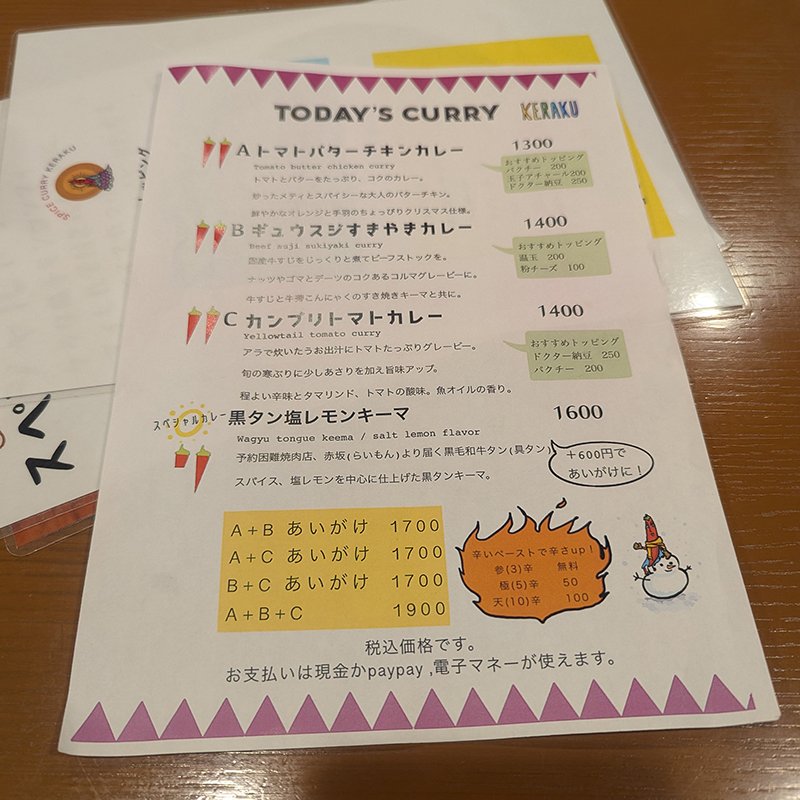 TODAY'S CURRY KERAKU
A トマトバターチキンカレー 1300
Tomato butter chicken curry
トマトとバターをたっぷり、コクのカレー。
炒ったメティとスパイシーな大人のバターチキン。
鮮やかなオレンジと手羽のちょっぴりクリスマス仕様。
おすすめトッピング
パクチー 200
玉子アチャール200
ドクター納豆 250
B ギュウスジすきやきカレー 1400
Beef suji sukiyaki curry
国産牛すじをじっくりと煮てビーフストックを。
ナッツやゴマとデーツのコクあるコルマグレービーに。
牛すじと牛蒡こんにゃくのすき焼きキーマと共に。
おすすめトッピング
温玉 200
粉チーズ 100
C カンブリトマトカレー 1400
Yellowtail tomato curry
アラで炊いたうお出汁にトマトたっぷりグレービー。
旬の寒ぶりに少しあさりを加え旨味アップ。
程よい辛味とタマリンド、トマトの酸味。魚オイルの香り。
おすすめトッピング
ドクター納豆 250
パクチー 200
スペシャルカレー 黒タン塩レモンキーマ 1600
Wagyu tongue keema / salt lemon flavor
予約困難焼肉店、赤坂(らいもん)より届く黒毛和牛タン(具タン)
スパイス、塩レモンを中心に仕上げた黒タンキーマ。
+600円で
あいがけに！
A+B あいがけ 1700
A+C あいがけ 1700
B+C あいがけ 1700
A+B+C 1900
辛いペーストで辛さup！
参(3)辛 無料
極(5)辛 50
天(10)辛 100
税込価格です。
お支払いは現金かpaypay ,電子マネーが使えます。
SPICE CURRY KERAKU
スペ